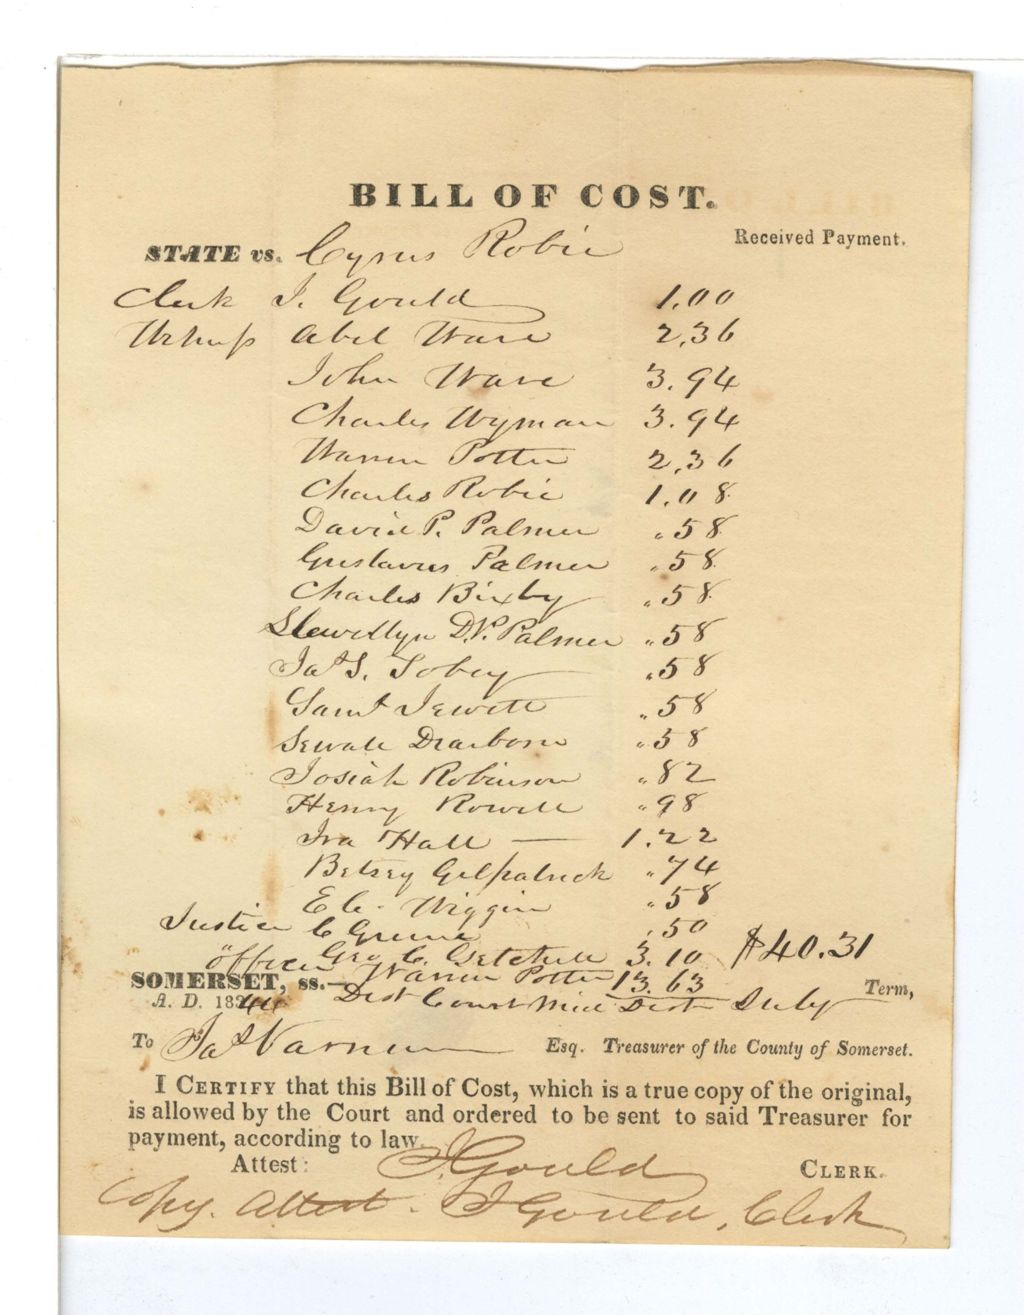 BILL OF COST.
Received Payment.
STATE vs. Cyrus Robie
Clerk J. Gould 1.00
Witness Abel Ware 2.36
John Ware 3.94
Charles Wyman 3.94
Warren Potter 2.36
Charles Robie 1.08
David P. Palmer .58
Gustavus Palmer .58
Charles Bixby .58
Llewellyn D. P. Palmer .58
Jas S. Tobey .58
Saml Jewett .58
Sewall Dearborn .58
Josiah Robinson .82
Henry Rowell .98
Ira Hall — 1.22
Betsey Gilpatrick .74
Eb. Wiggin .58
Justice C Greene .50
Officer Geo. C. Getchell 3.10 $40.31
Warren Potter 13.63
SOMERSET, ss.— Dist Court Mid Dist July Term,
A. D. 1844
To Jas Varnum Esq. Treasurer of the County of Somerset.
I CERTIFY that this Bill of Cost, which is a true copy of the original,
is allowed by the Court and ordered to be sent to said Treasurer for
payment, according to law.
Attest: J. Gould CLERK.
Copy. Attest. J Gould, Clerk